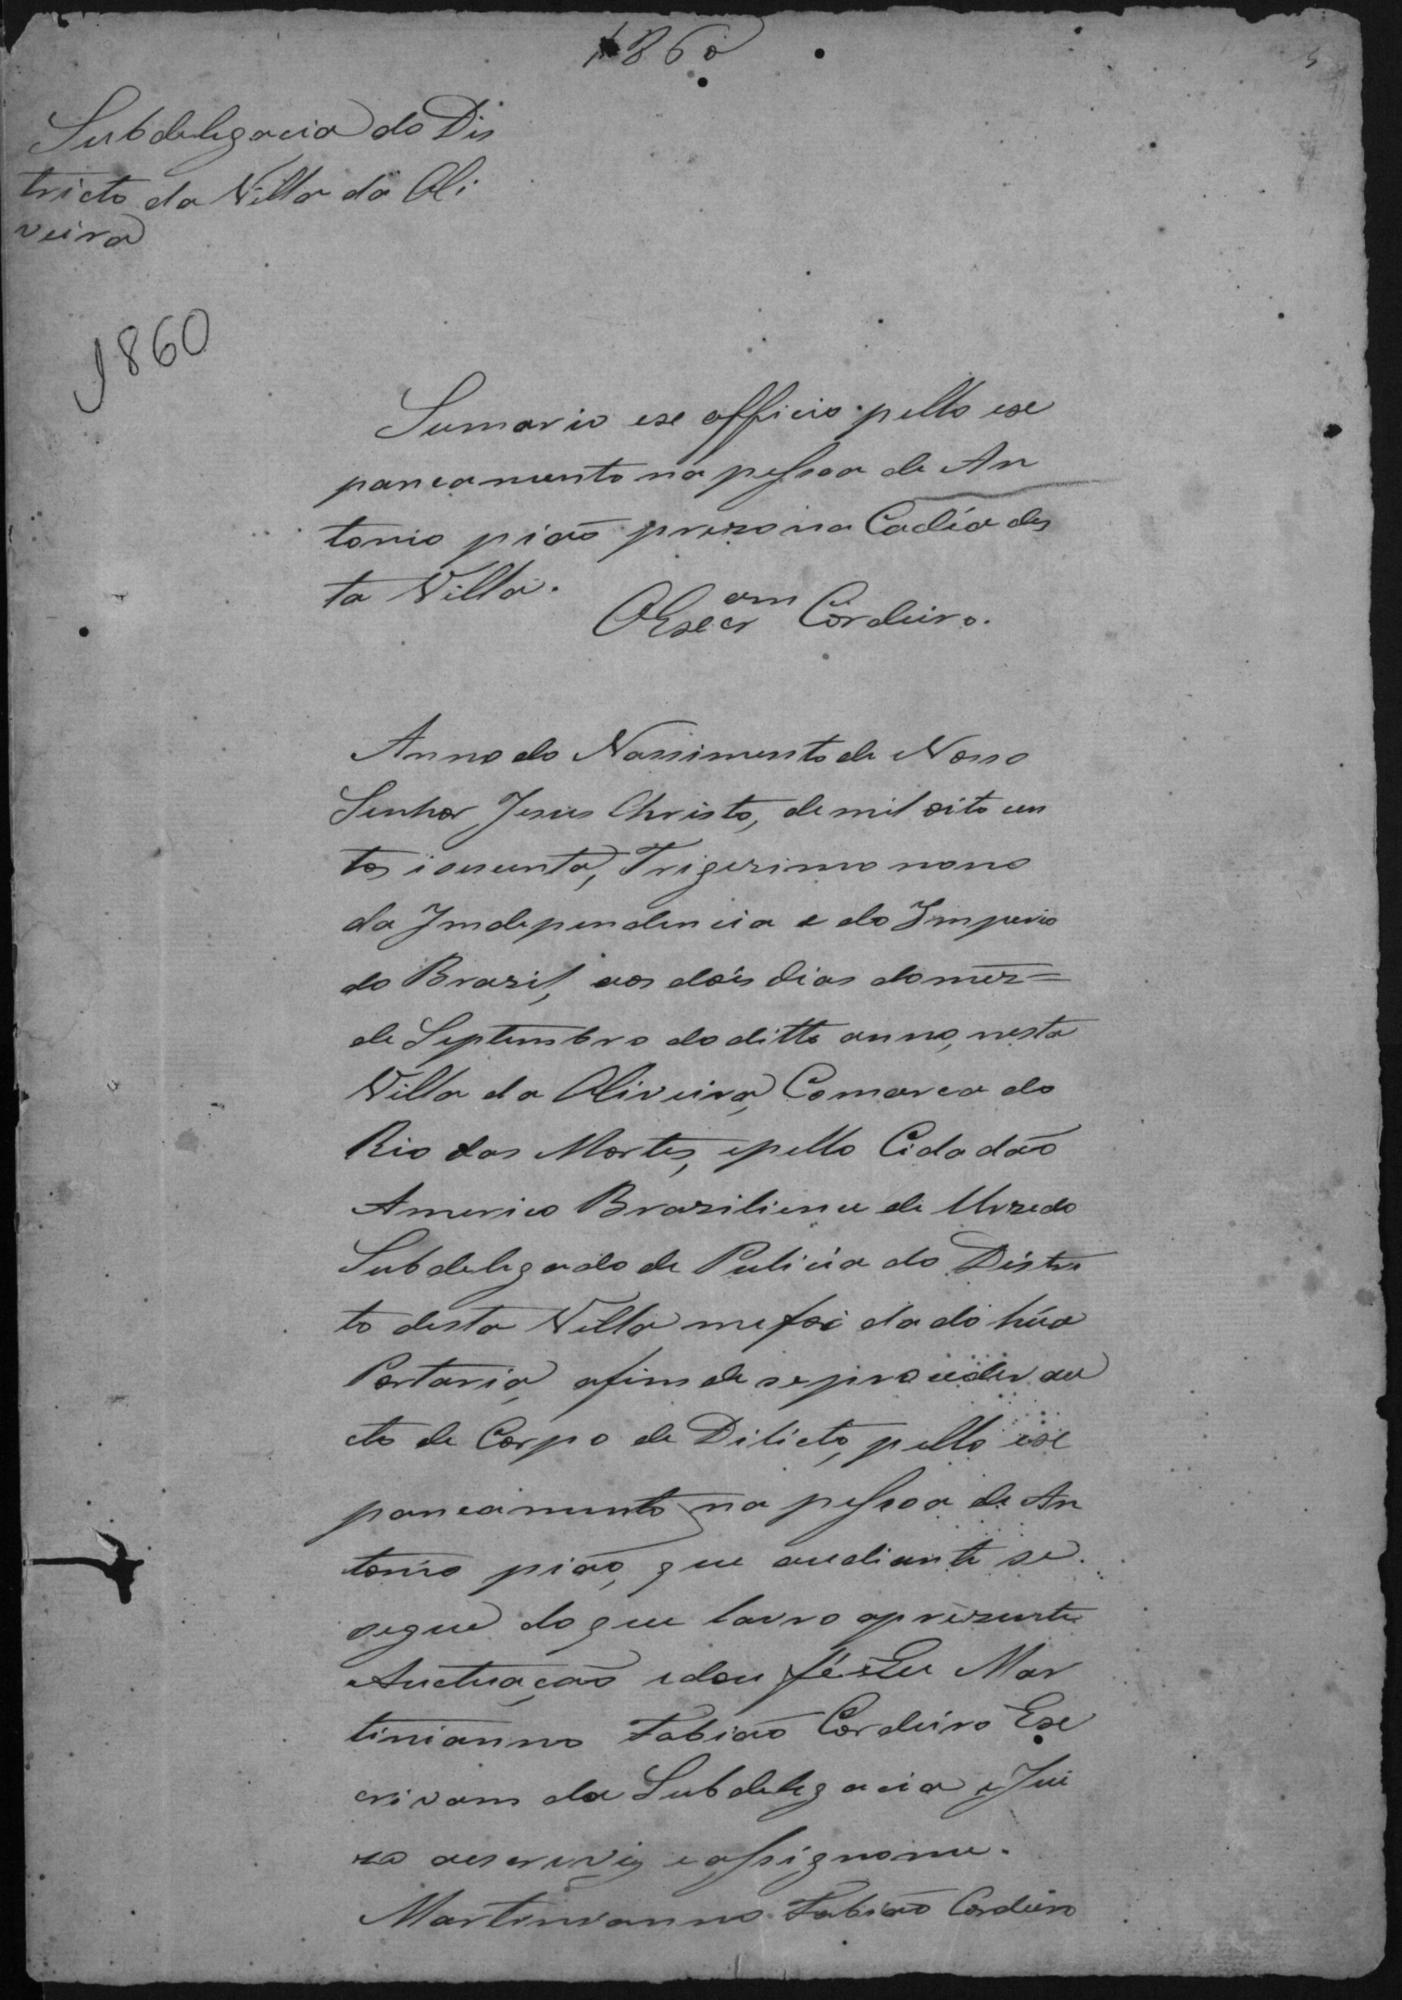 1860
5
Subdelegacia do Dis
tricto da Villa da Oli
veira
1860
Sumario ex officio pello es
pancamento na pessoa de An
tonio pião prezo na Cadêa des
ta Villa.
O Escram Cordeiro.
Anno do Nassimento de Nosso
Senhor Jesus Christo, de mil oito cen
tos i secenta, Trigezimo nono
da Imdependencia e do Imperio
do Brazil, aos dois dias do mez=
de Septembro do ditto anno, nesta
Villa da Oliveira, Comarca do
Rio das Mortes, epello Cidadão
Americo Braziliense de
Subdelegado de Pulicia do Distri
to desta Villa me foi dado húa
Portaria, afim de se proceder au
cto de Corpo de Dilicto, pello es
pancamento na pessoa de An
tonio pião, que aediante se
segue do que lavro aprezente
Auctuação edou fé Eu Mar
tinianno Fabião Cordeiro Es
crivam da Subdelegacia e Jui
zo aescrevy eassignome.
Martinianno Fabião Cordeiro